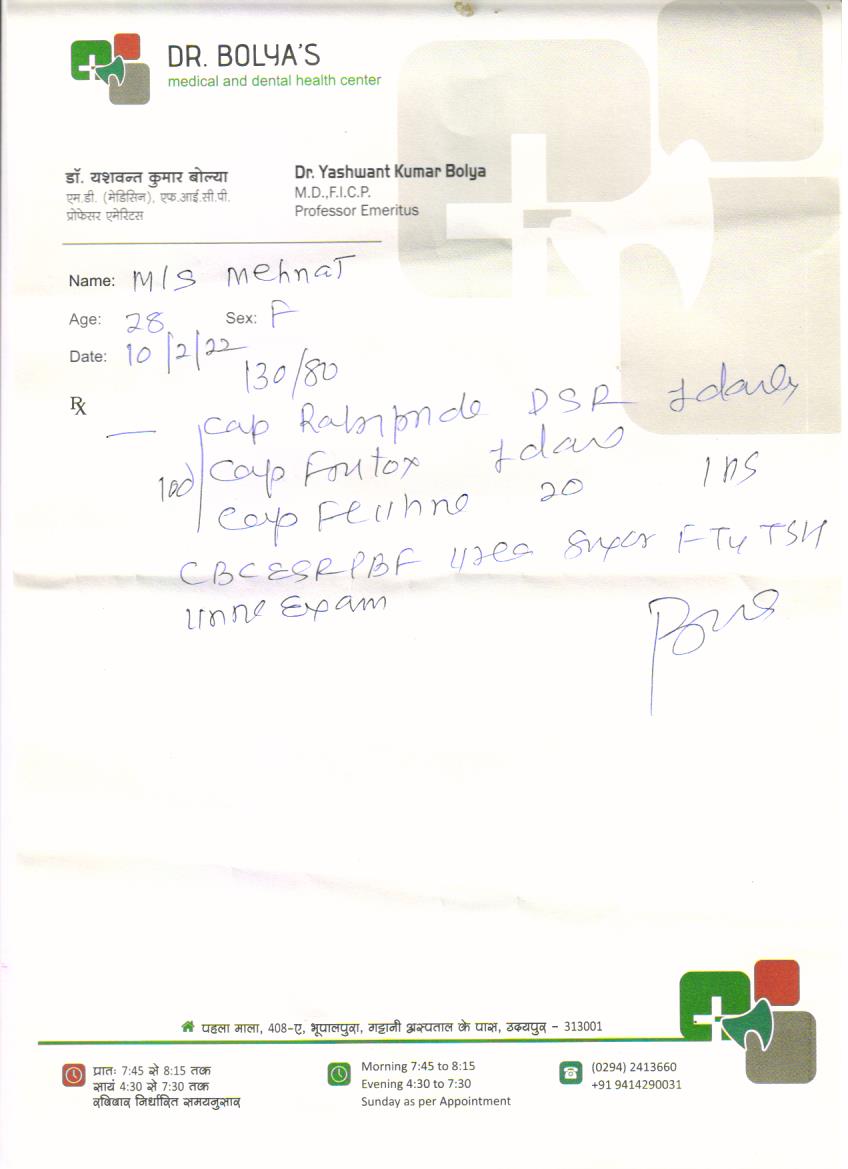 DR. BOLYA'S
medical and dental health center
डॉ. यशवन्त कुमार बोल्या
एम.डी. (मेडिसिन), एफ.आई.सी.पी.
प्रोफेसर एमेरिटस
Dr. Yashwant Kumar Bolya
M.D.,F.I.C.P.
Professor Emeritus
Name: M/S Mehnat
Age: 28 Sex: F
Date: 10/2/22
130/80
Rx
Cap DSR
Cap
Cap 20
CBC ESR PBF Urea Sugar FT4 TSH
Urine Exam
पहला माला, 408-ए, भूपालपुरा, गट्टानी अस्पताल के पास, उदयपुर - 313001
प्रातः 7:45 से 8:15 तक
सायं 4:30 से 7:30 तक
रविवार निर्धारित समयनुसार
Morning 7:45 to 8:15
Evening 4:30 to 7:30
Sunday as per Appointment
(0294) 2413660
+91 9414290031